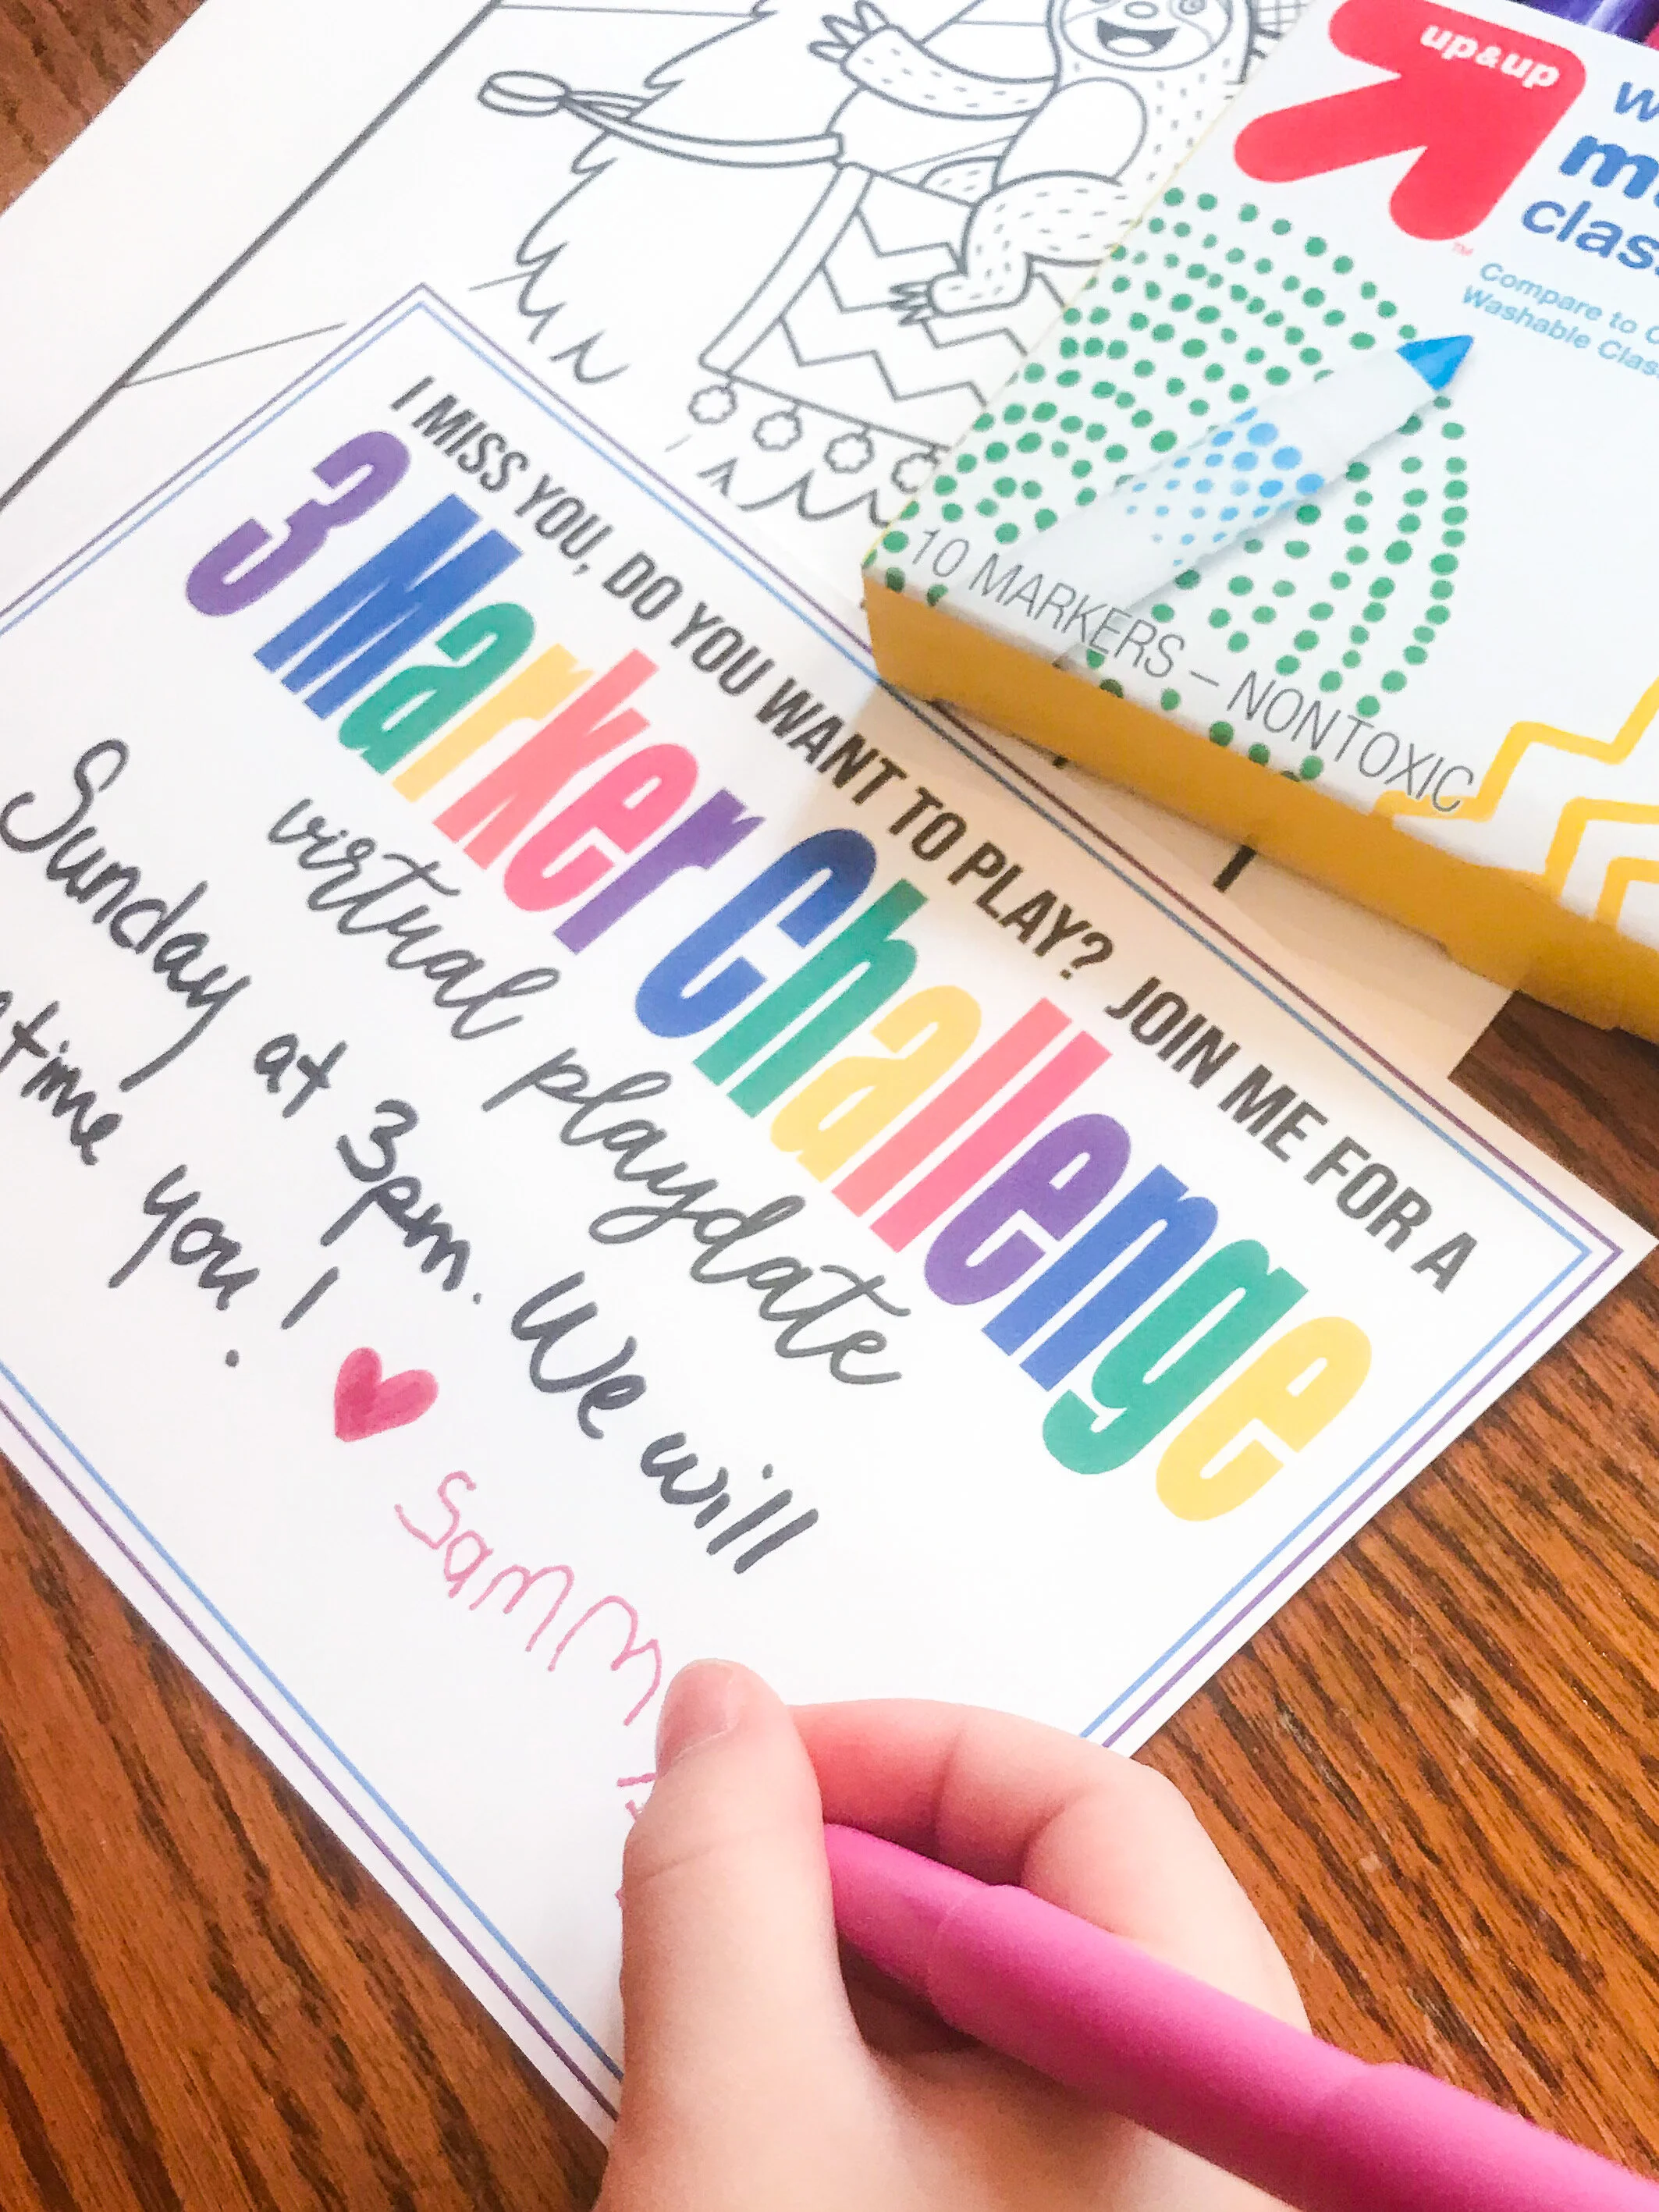 up&up
Compare to
Washable
10 MARKERS – NONTOXIC
I MISS YOU, DO YOU WANT TO PLAY? JOIN ME FOR A
3 Marker Challenge
virtual playdate
Sunday at 3pm. We will
you!
Samm